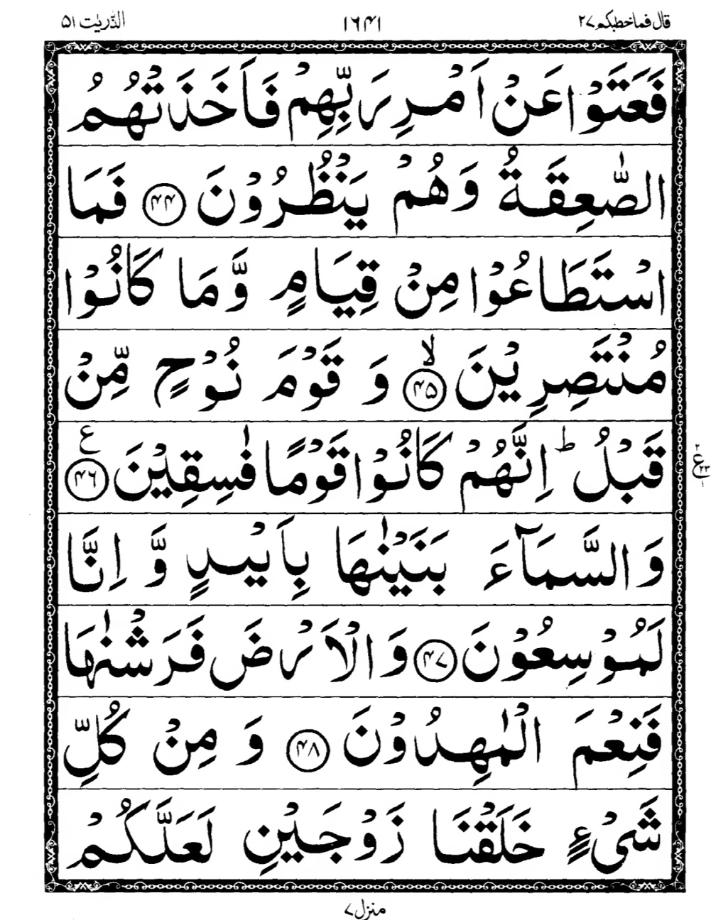 قال فماخطبکم ۲۷ ۱۶۴۱ الذّٰریٰت ۵۱
فَعَتَوْا عَنْ اَمْرِ رَبِّهِمْ فَاَخَذَتْهُمُ
الصّٰعِقَةُ وَهُمْ يَنْظُرُوْنَ ﴿۴۴﴾ فَمَا
اسْتَطَاعُوْا مِنْ قِيَامٍ وَّمَا كَانُوْا
مُنْتَصِرِيْنَ ۙ﴿۴۵﴾ وَ قَوْمَ نُوْحٍ مِّنْ
قَبْلُ ؕ اِنَّهُمْ كَانُوْا قَوْمًا فٰسِقِيْنَ ﴿۴۶﴾ ع
وَالسَّمَآءَ بَنَيْنٰهَا بِاَيْىدٍ وَّ اِنَّا
لَمُوْسِعُوْنَ ﴿۴۷﴾ وَالْاَرْضَ فَرَشْنٰهَا
فَنِعْمَ الْمٰهِدُوْنَ ﴿۴۸﴾ وَ مِنْ كُلِّ
شَیْءٍ خَلَقْنَا زَوْجَيْنِ لَعَلَّكُمْ
منزل ۷